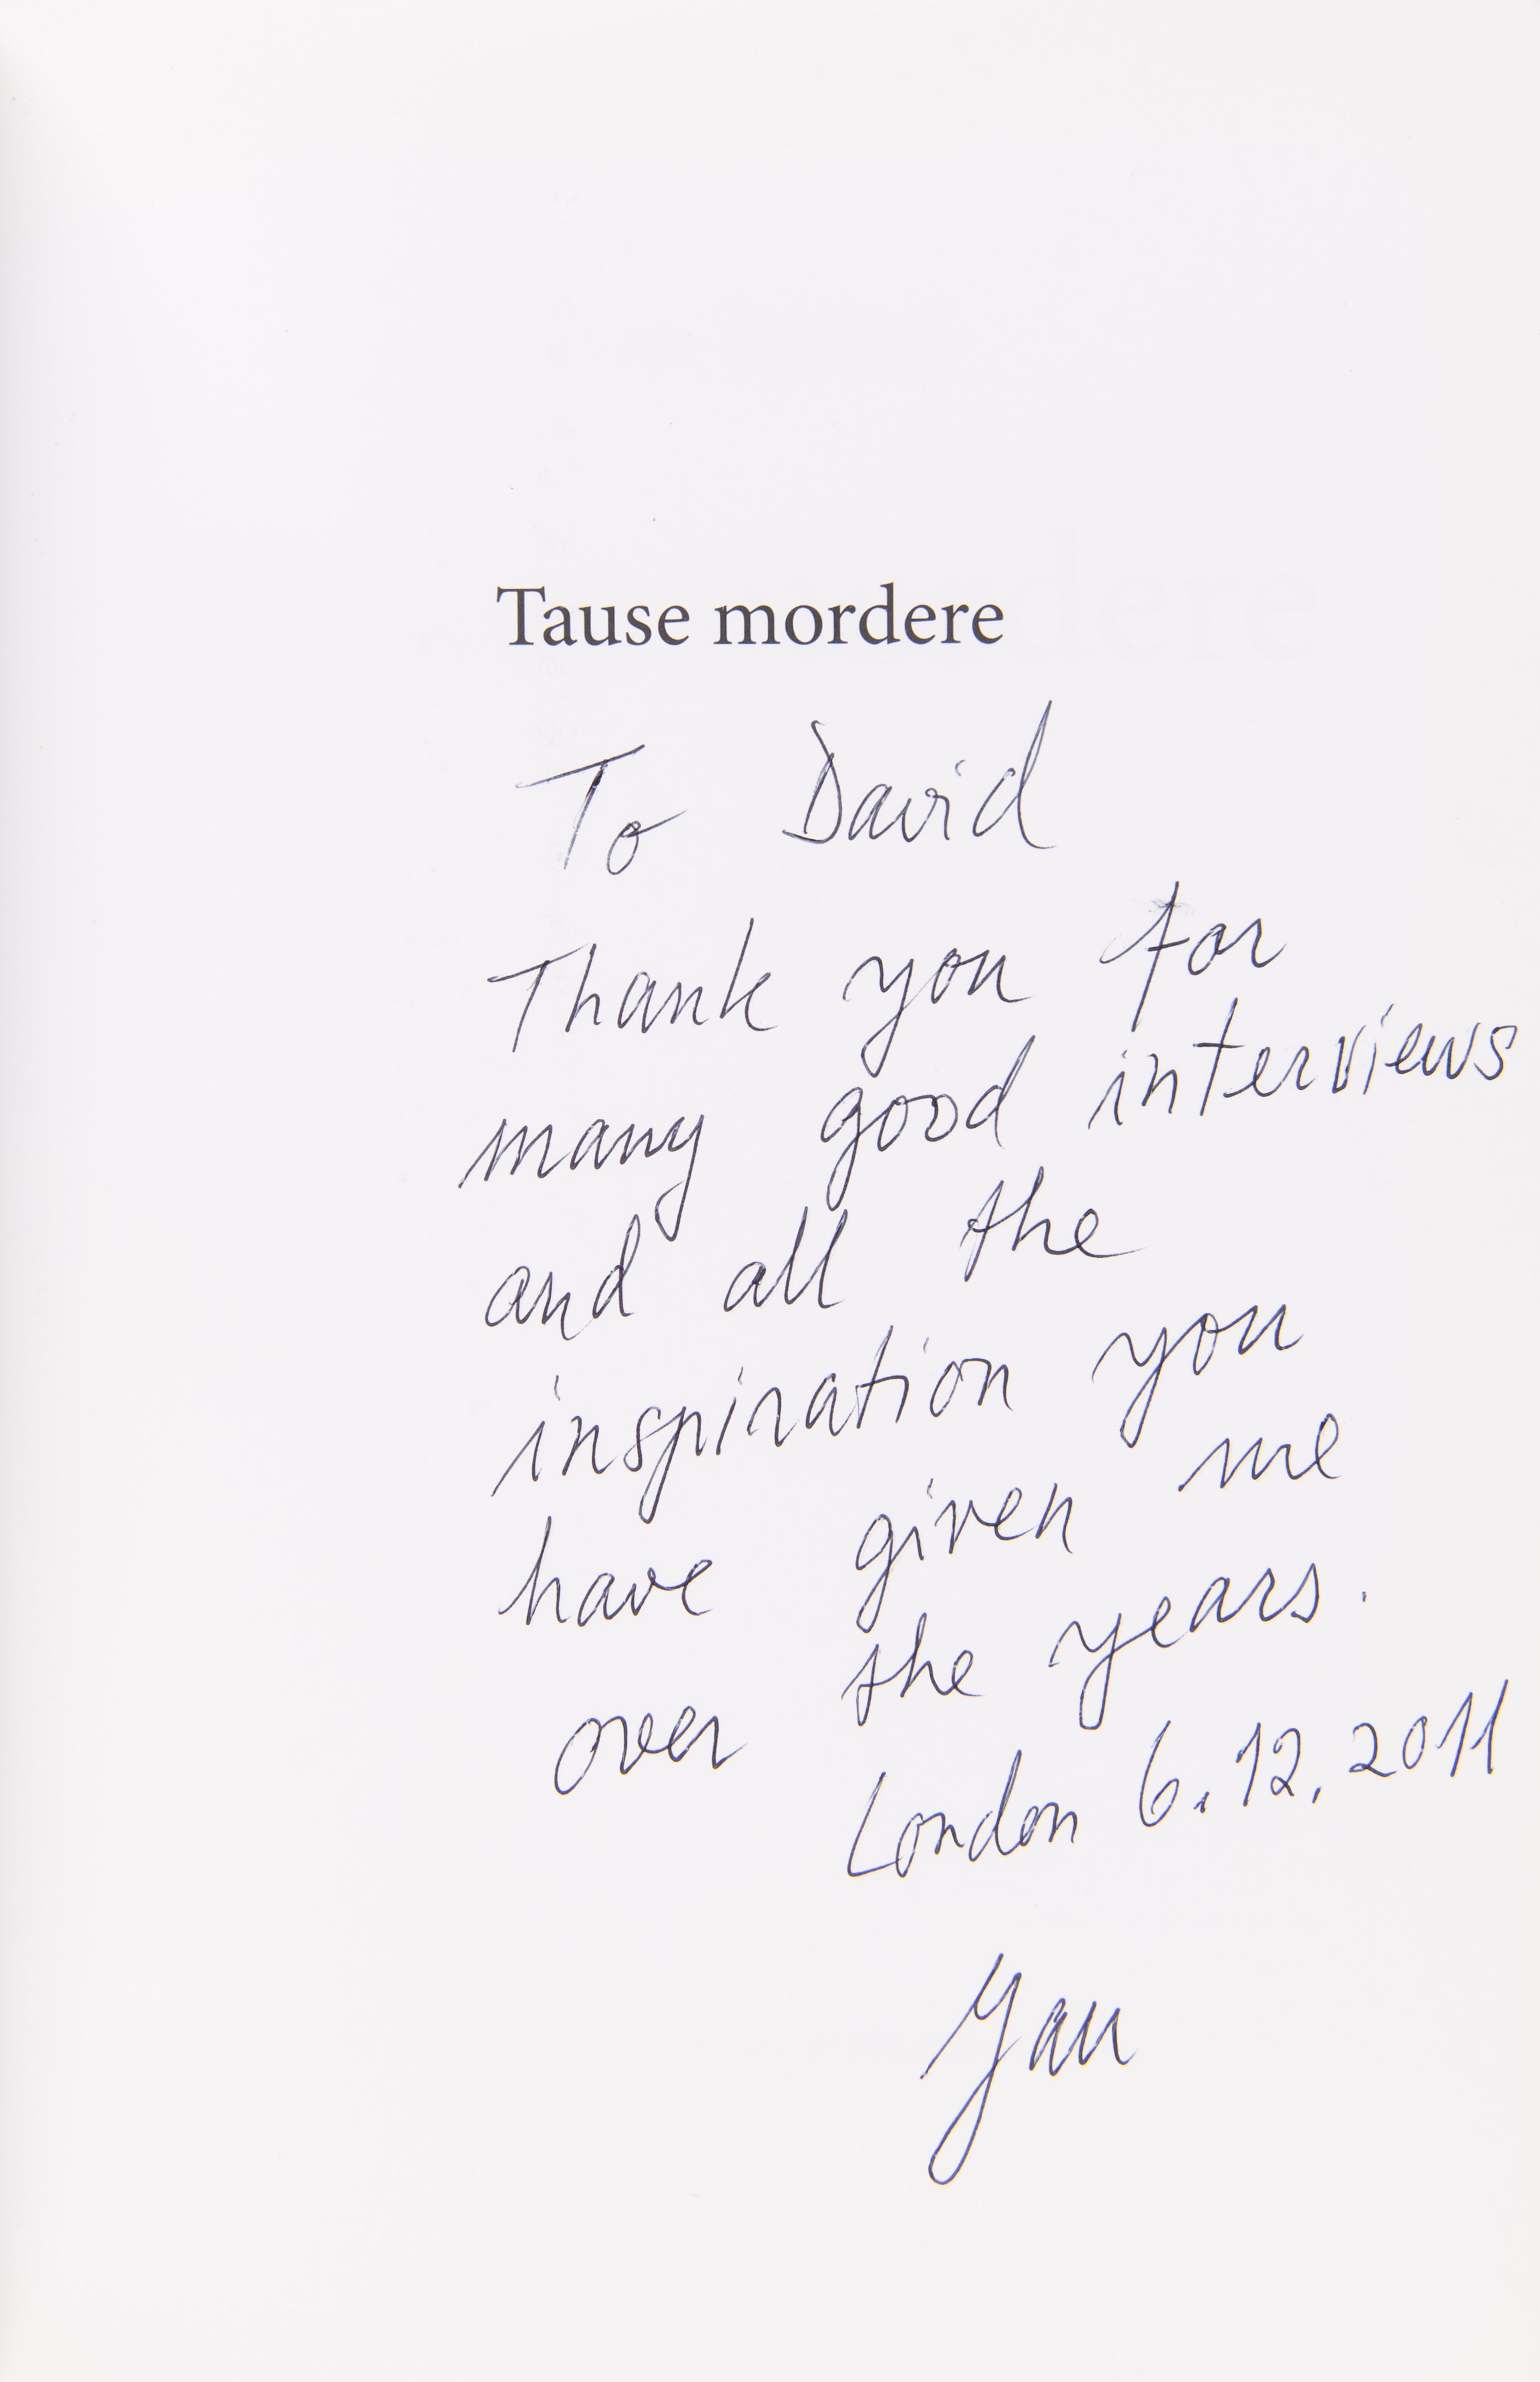 Tause mordere
To David
Thank you for
many good interviews
and all the
inspiration you
have given me
over the years.
London 6.12.2011
Yan